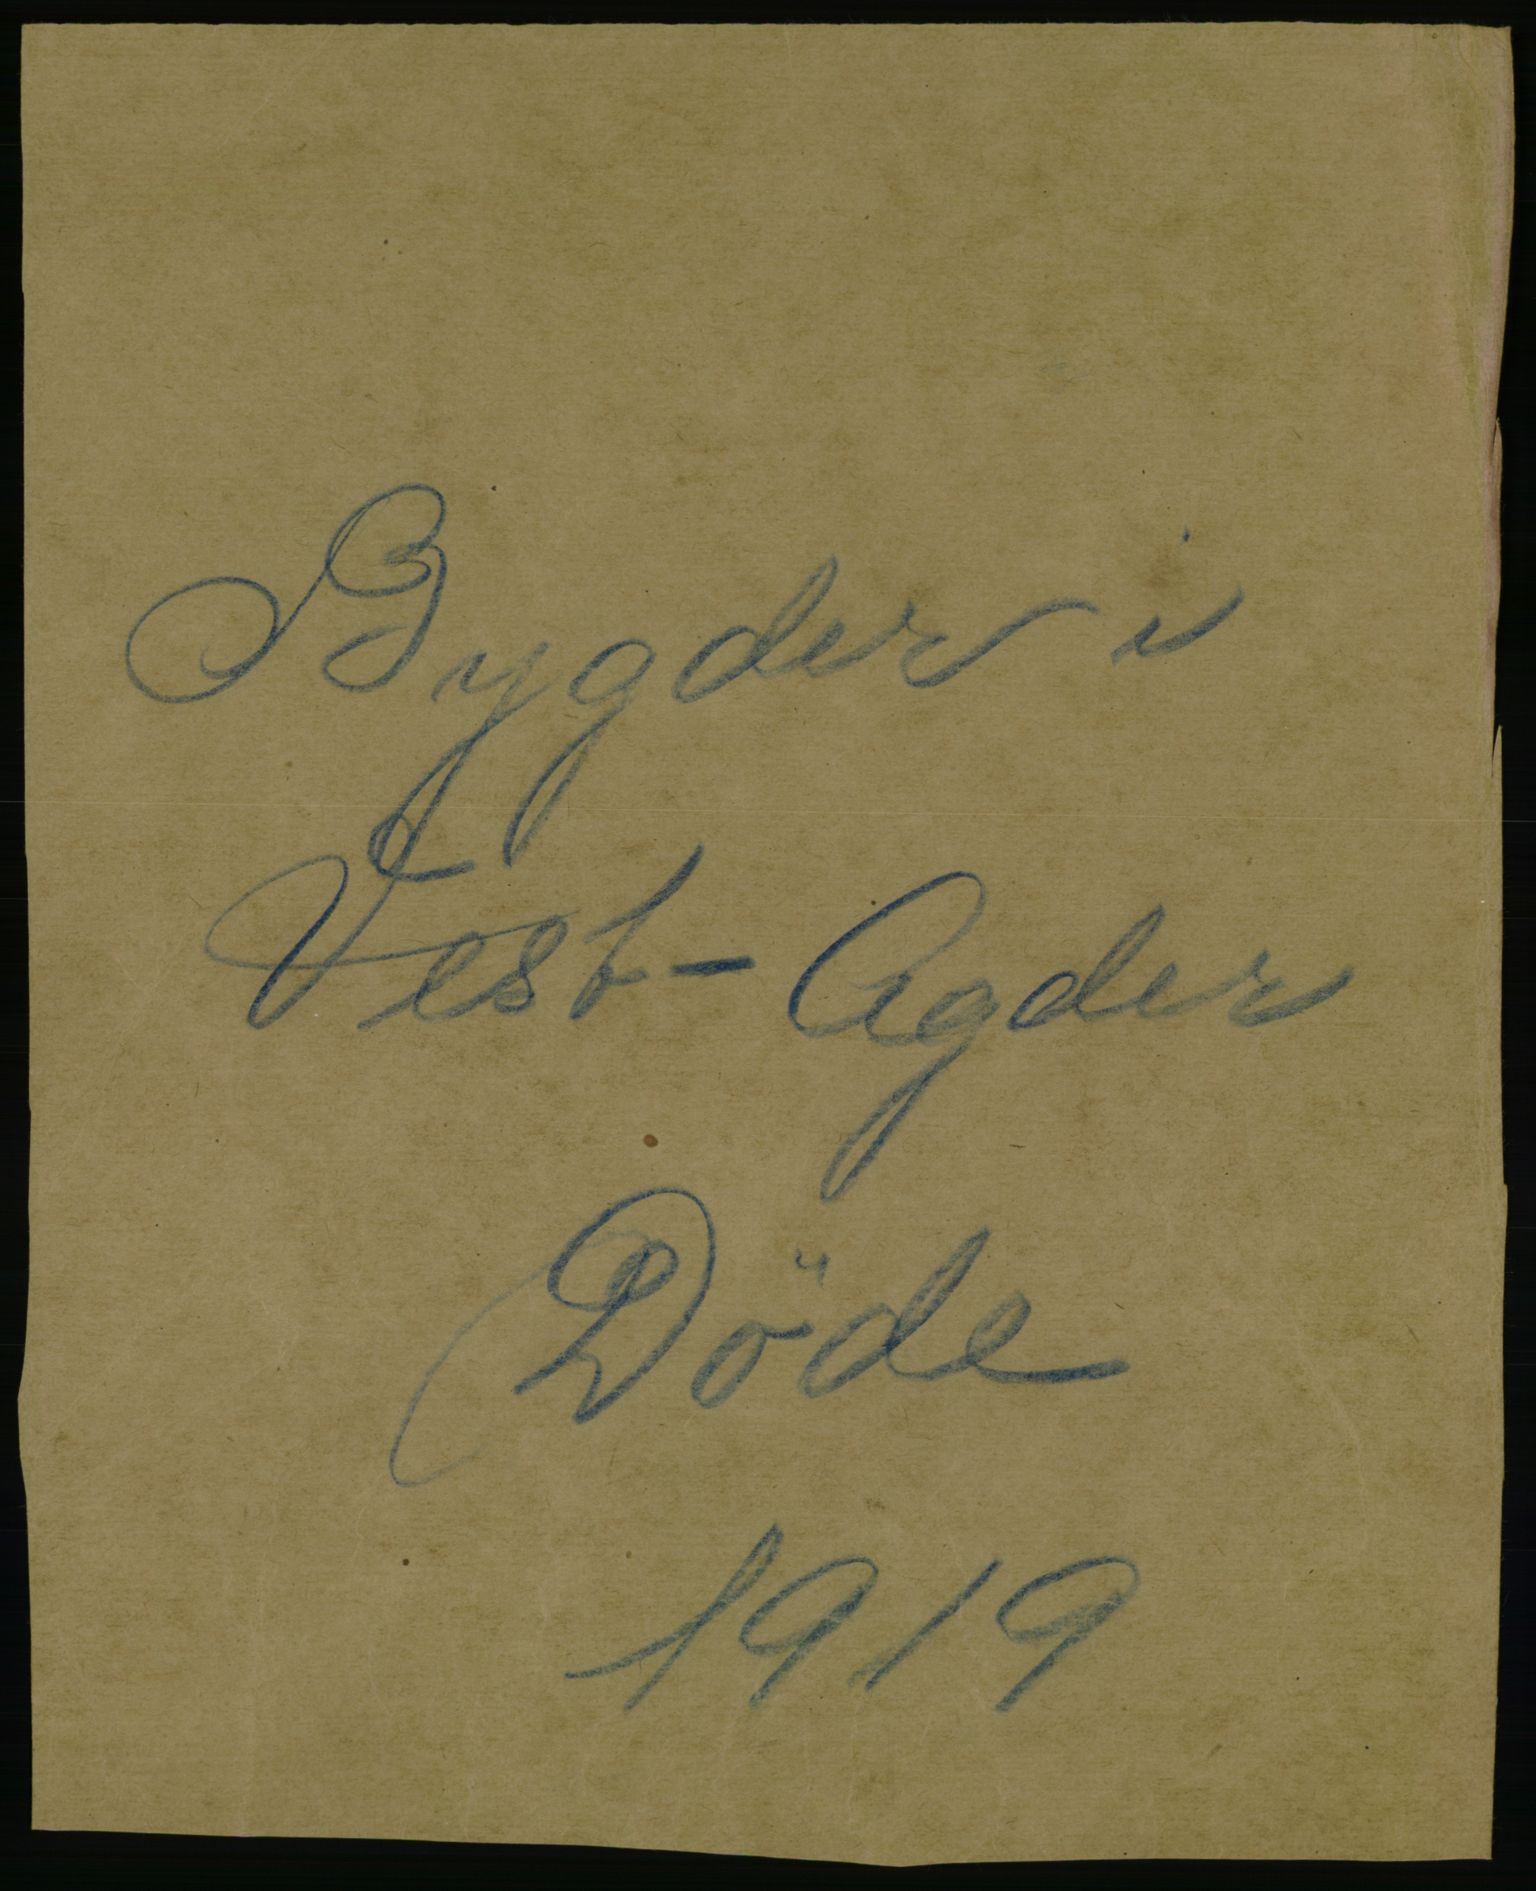 Bygder i
Vest-Agder
Döde
1919